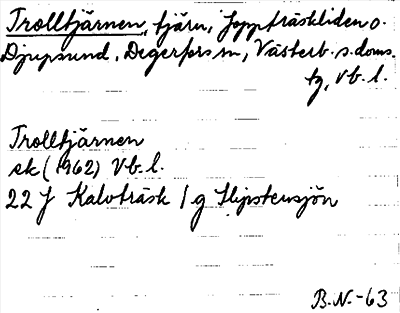 Trolltjärnen, tjärn, Joppträskliden o.
Djupsund, Degerfors sn, Västerb. s. doms.
tg, Vb. l.
Trolltjärnen
ek (1962) Vb. l.
22 J Kalvträsk 1 g Slipstensjön
B.N.-63